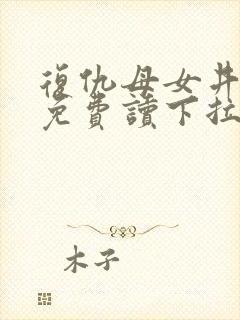 復仇母女丼
免費讀下拉
木子